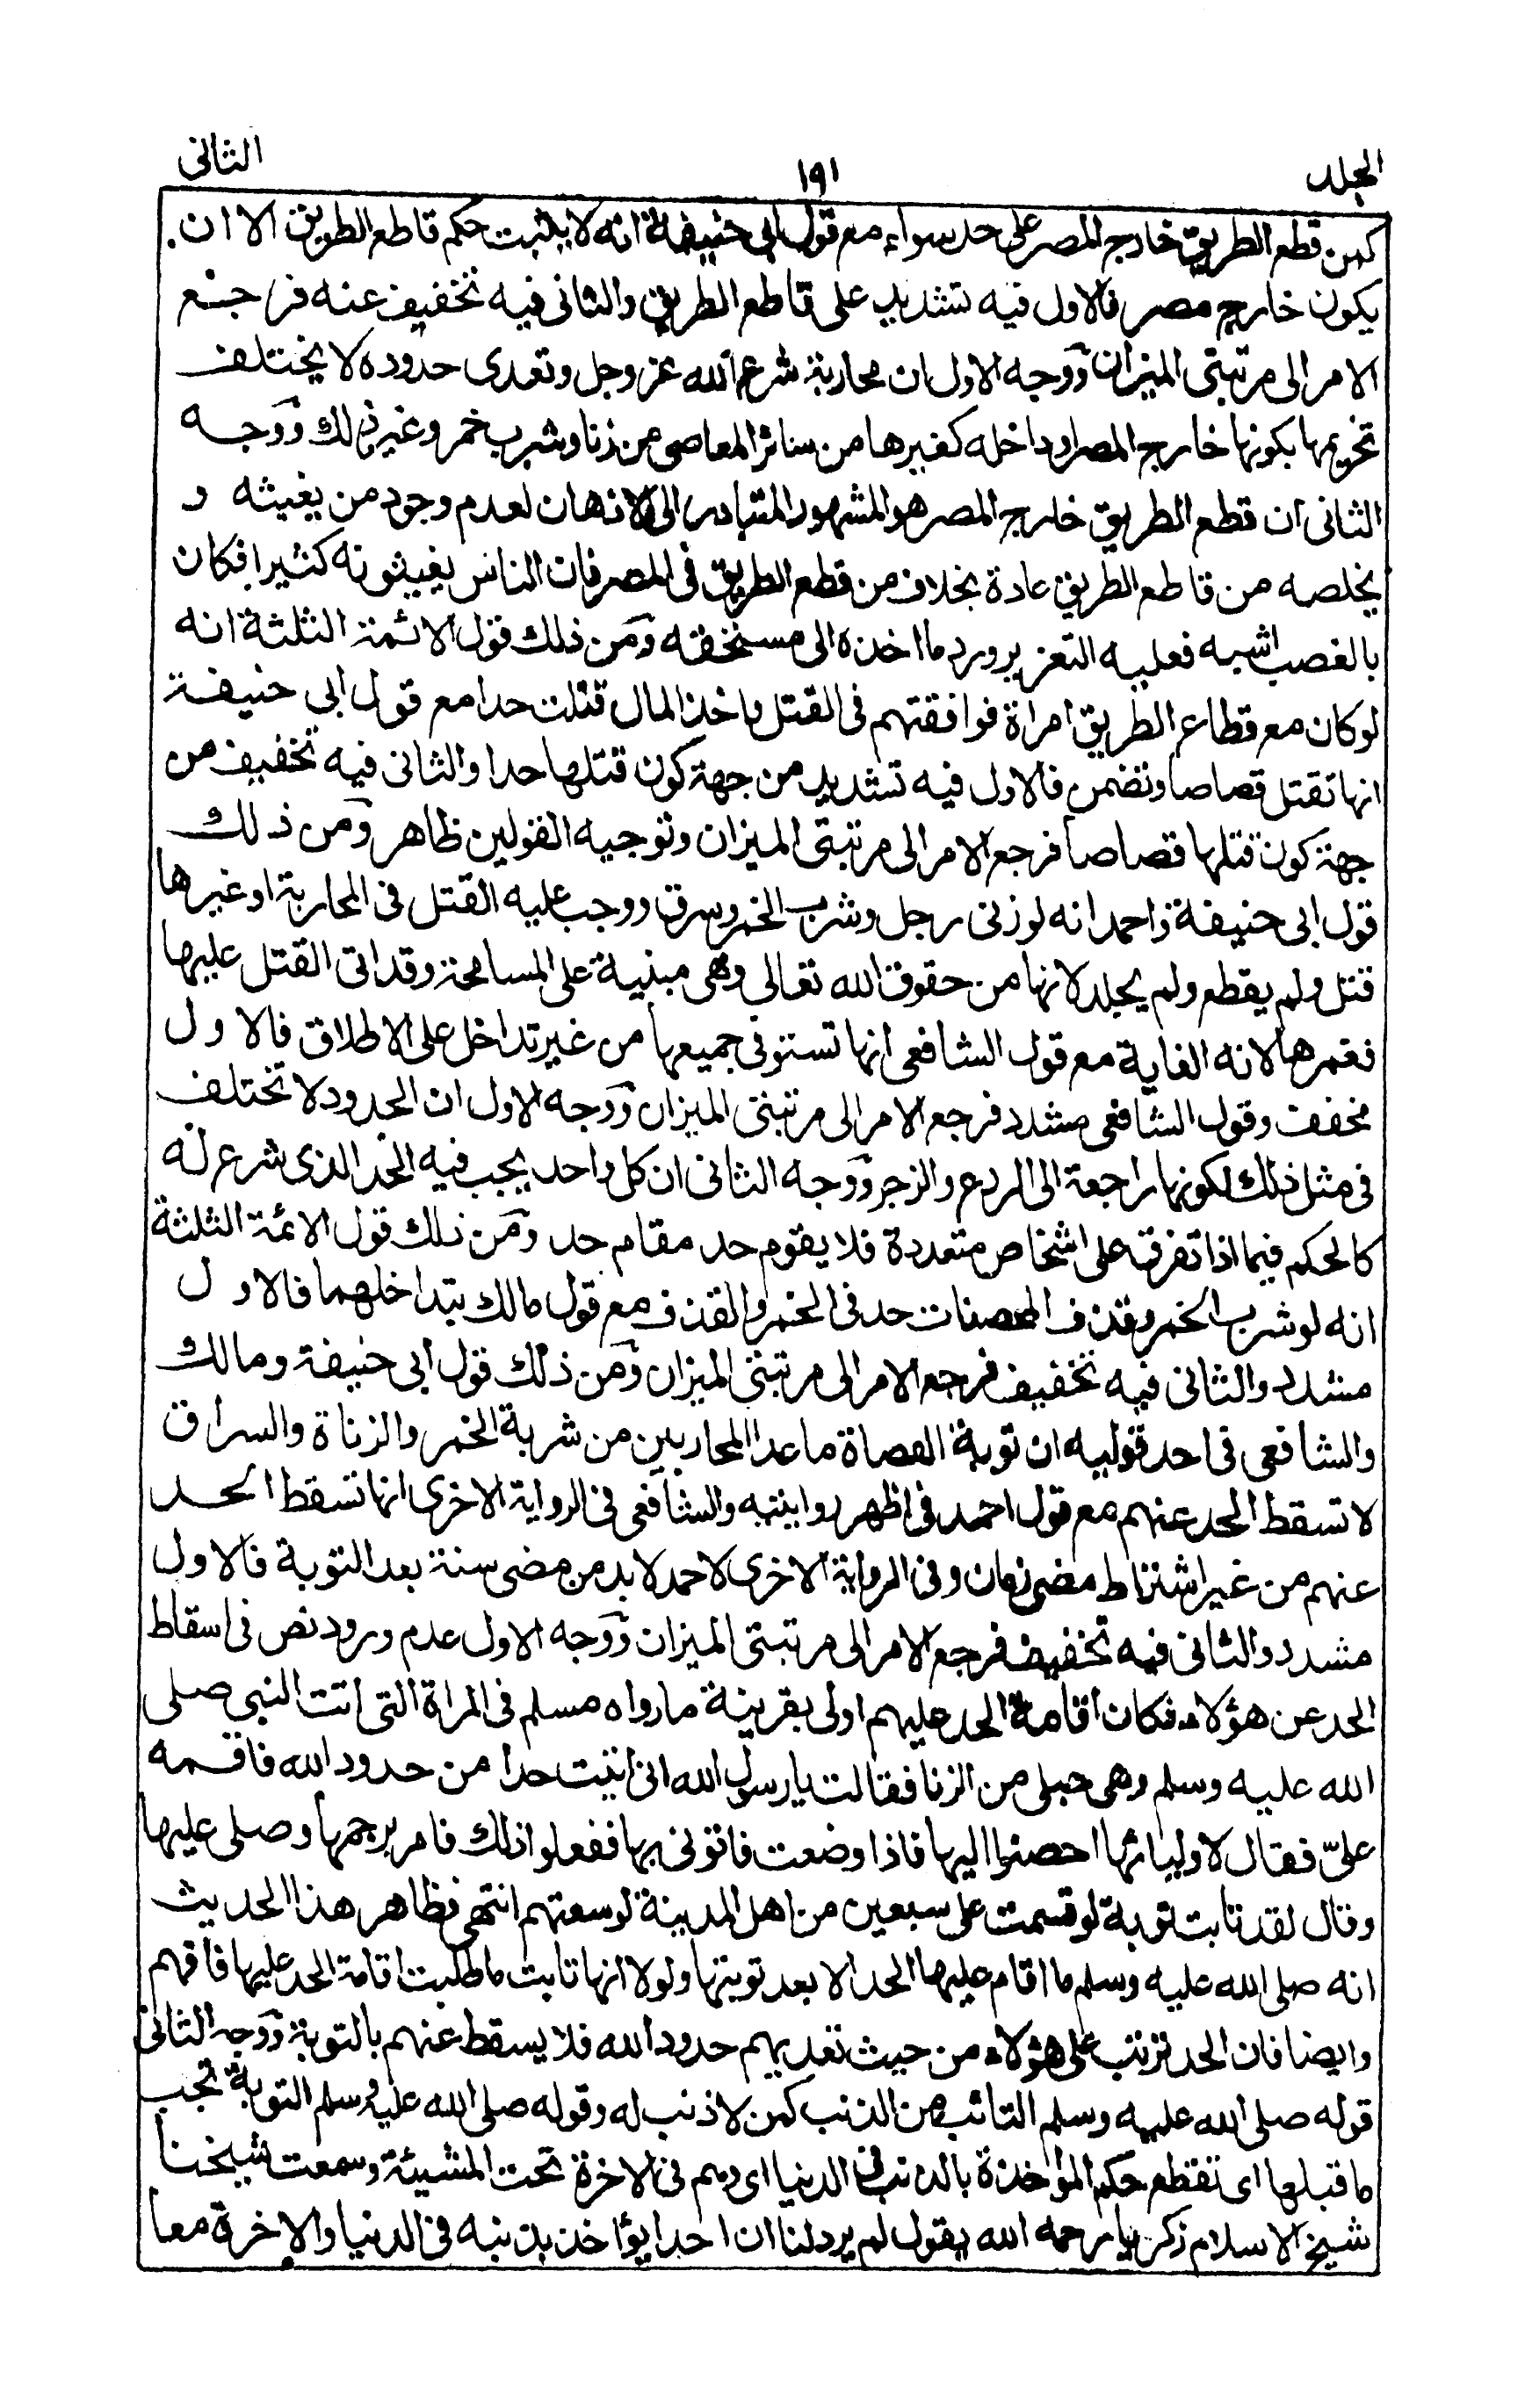 الجلد
١٩١
الثانى
كمن قطع الطريق خارج المصر على حد سواء مع قول ابى حنيفة انه لا يثبت حكم قاطع الطريق الا ان
يكون خارج مصر فالاول فيه تشديد على قاطع الطريق والثانى فيه تخفيف عنه فرجع
الامر الى مرتبتى الميزان ووجه الاول ان محاربة شرع الله عز وجل وتعدى حدوده لا يختلف
تحريمها بكونها خارج المصر او داخله كغيرها من سائر المعاصى من زنا وشرب خمر وغير ذلك ووجه
الثانى ان قطع الطريق خارج المصر هو المشهور المتبادر الى الاذهان لعدم وجود من يغيثه و
يخلصه من قاطع الطريق عادة بخلاف من قطع الطريق فى المصر فان الناس يغيثونه كثيرا فكان
بالغصب اشبه فعليه التعزير ورد ما اخذه الى مستحقه ومن ذلك قول الائمة الثلثة انه
لو كان مع قطاع الطريق امراة فوافقتهم فى القتل واخذ المال قتلت حدا مع قول ابى حنيفة
انها تقتل قصاصا وتضمن فالاول فيه تشديد من جهة كون قتلها حدا والثانى فيه تخفيف من
جهة كون قتلها قصاصا فرجع الامر الى مرتبتى الميزان وتوجيه القولين ظاهر ومن ذلك
قول ابى حنيفة واحمد انه لو زنى رجل وشرب الخمر وسرق ووجب عليه القتل فى المحاربة او غيرها
قتل ولم يقطع ولم يجلد لانها من حقوق الله تعالى وهى مبنية على المسامحة وقد اتى القتل عليها
فغمرها لانه الغاية مع قول الشافعى انها تستوفى جميعها من غير تداخل على الاطلاق فالاول
مخفف وقول الشافعى مشدد فرجع الامر الى مرتبتى الميزان ووجه الاول ان الحدود لا تختلف
فى مثل ذلك لكونها راجعة الى الردع والزجر ووجه الثانى ان كل واحد يجب فيه الحد الذى شرع له
كالحكم فيما اذا تفرقت على اشخاص متعددة فلا يقوم حد مقام حد ومن ذلك قول الائمة الثلثة
انه لو شرب الخمر وقذف المحصنات حد فى الخمر والقذف مع قول مالك بتداخلهما فالاول
مشدد والثانى فيه تخفيف فرجع الامر الى مرتبتى الميزان ومن ذلك قول ابى حنيفة ومالك
والشافعى فى احد قوليه ان توبة العصاة ما عدا المحاربين من شربة الخمر والزناة والسراق
لا تسقط الحد عنهم مع قول احمد فى اظهر روايتيه والشافعى فى الرواية الاخرى انها تسقط الحد
عنهم من غير اشتراط مضى زمان وفى الرواية الاخرى لاحمد لا بد من مضى سنة بعد التوبة فالاول
مشدد والثانى فيه تخفيف فرجع الامر الى مرتبتى الميزان ووجه الاول عدم ورود نص فى اسقاط
الحد عن هؤلاء فكان اقامة الحد عليهم اولى بقرينة ما رواه مسلم فى المراة التى اتت النبى صلى
الله عليه وسلم وهى حبلى من الزنا فقالت يا رسول الله انى اتيت حدا من حدود الله فاقمه
علىّ فقال لاوليائها احسنوا اليها فاذا وضعت فاتونى بها ففعلوا ذلك فامر برجمها وصلى عليها
وقال لقد تابت توبة لو قسمت على سبعين من اهل المدينة لوسعتهم انتهى فظاهر هذا الحديث
انه صلى الله عليه وسلم ما اقام عليها الحد الا بعد توبتها ولولا انها تابت ما طلبت اقامة الحد عليها فافهم
وايضا فان الحد ترتب على هؤلاء من حيث تعديهم حدود الله فلا يسقط عنهم بالتوبة ووجه الثانى
قوله صلى الله عليه وسلم التائب من الذنب كمن لا ذنب له وقوله صلى الله عليه وسلم التوبة تجب
ما قبلها اى تقطع حكم المؤاخذة بالذنب فى الدنيا اى وهم فى الاخرة تحت المشيئة وسمعت شيخنا
شيخ الاسلام زكريا رحمه الله يقول لم يرد لنا ان احدا يؤاخذ بذنبه فى الدنيا والاخرة معا